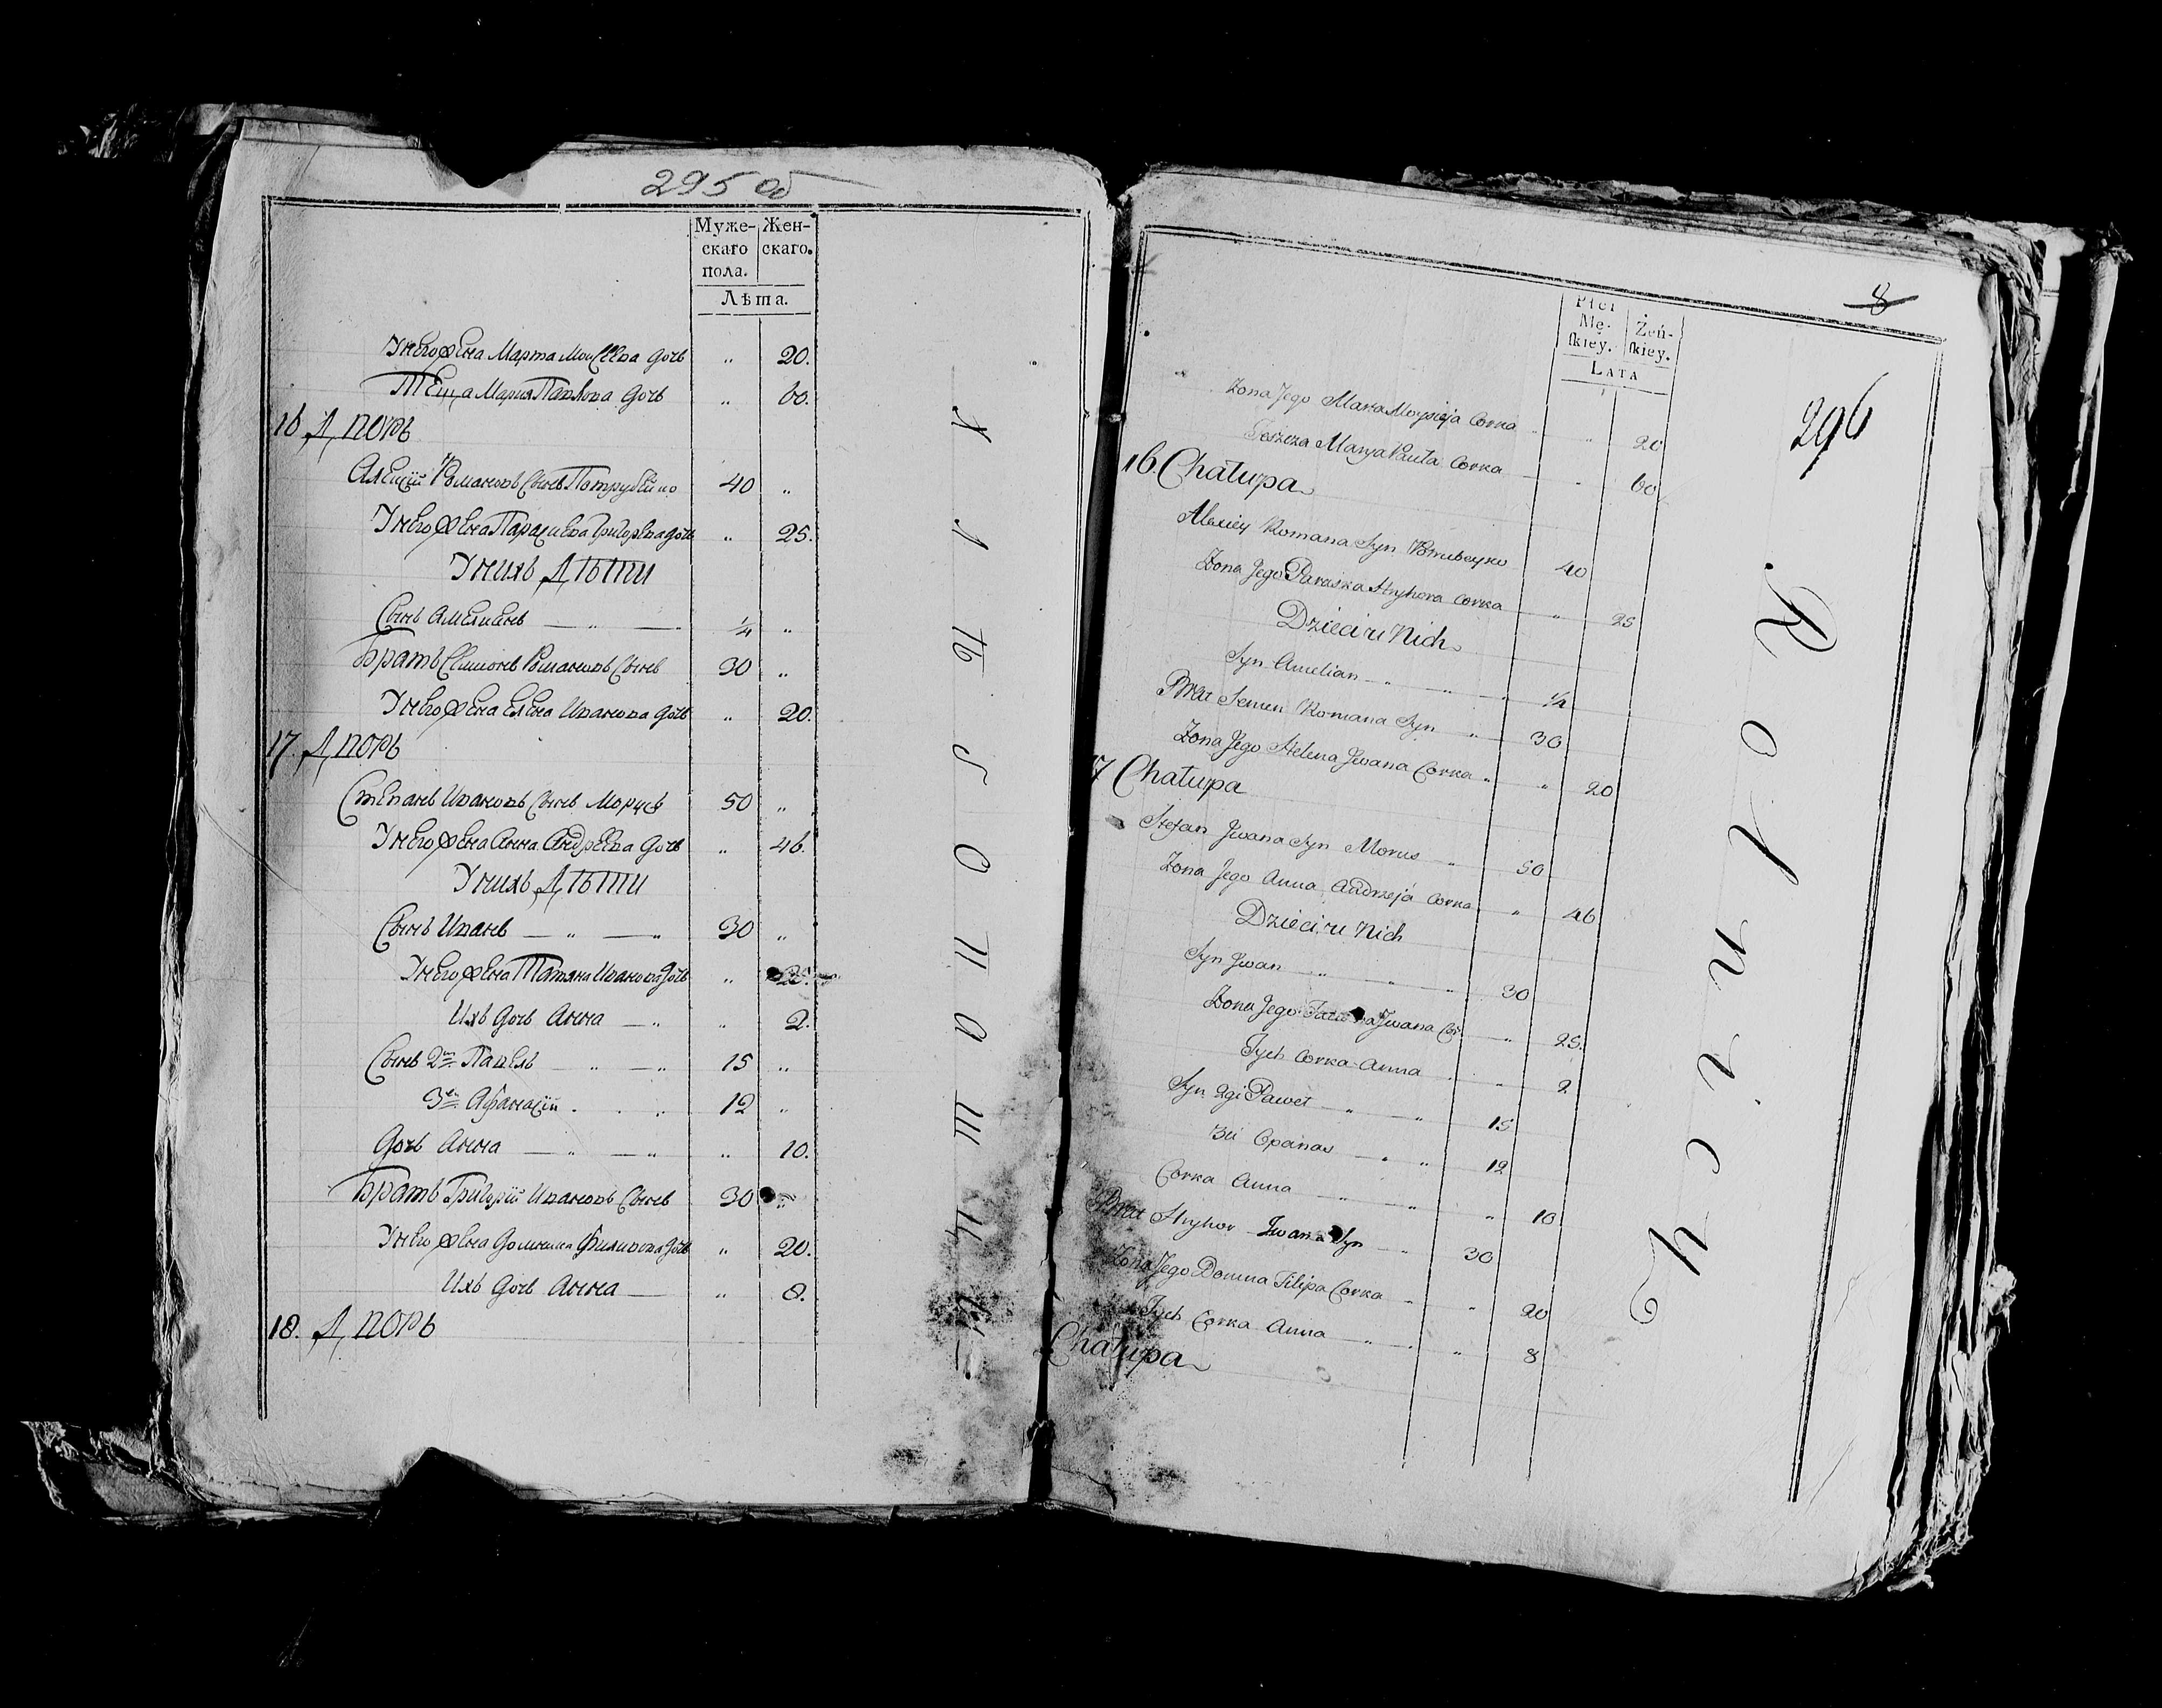 295 об
Муже-
скаго
пола.
Жен-
скаго.
Лѣта.
У него жена Марта Моисеева дочь „ 20.
Теща Мария Павлова дочь „ 60.
16 Дворъ
Алексій Романовъ сынъ Потрубейко 40 „
У него жена Параскева Григорьева дочь „ 25.
У нихъ дѣти
Сынъ Амельянъ — „ — ¼ „
Братъ Симонъ Романовъ сынъ 30 „
У него жена Елена Иванова дочь „ 20.
17. Дворъ
Степанъ Ивановъ сынъ Морусъ 50 „
У него жена Анна Андреева дочь „ 46.
У нихъ дѣти
Сынъ Иванъ — „ — „ 30 „
У него жена Татяна Иванова дочь „
Ихъ дочь Анна — „ „ 2.
Сынъ 2й Павелъ — „ — „ 15 „
3й Афанасій „ 12 „
дочь Анна — „ — „ „ 10.
Братъ Григорій Ивановъ сынъ 30 „
У него жена Домникия Филипова дочь „ 20.
Ихъ дочь Анна — „ 8.
18. Дворъ
Хлѣбопашцы
8
296
Płci
Mę-
ſkiey.
Żeń-
ſkiey.
LATA
Żona Jego Marta Moysieja Corka „ 20
Teszcza Marya Pauła Corka — „ 60
16. Chałupa
Alexiey Romana Syn Potrubeyko 40
Żona Jego Paraska Hryhora Corka „ 25
Dzieci u Nich
Syn Amelian — „ — „ ¼
Brat Semen Romana Syn „ 30
Żona Jego Helena Jwana Corka „ „ 20
17 Chałupa
Stefan Jwana Syn Morus „ 50
Żona Jego Anna Andrzeja Corka „ 46
Dzieci u Nich
Syn Jwan — „ „ „ 30
Żona Jego Jwana Cór. „ 25.
Tych Corka Anna „ „ 2
Syn 2gi Paweł „ — „ 15
3ci Opanas — „ „ 12
Corka Anna — „ — „ „ 10
Brat Hryhor Jwana Syn — „ 30
Żona Jego Domna Filipa Corka „ „ 20
Tych Corka Anna — „ „ 8
Chałupa
Rolnicy